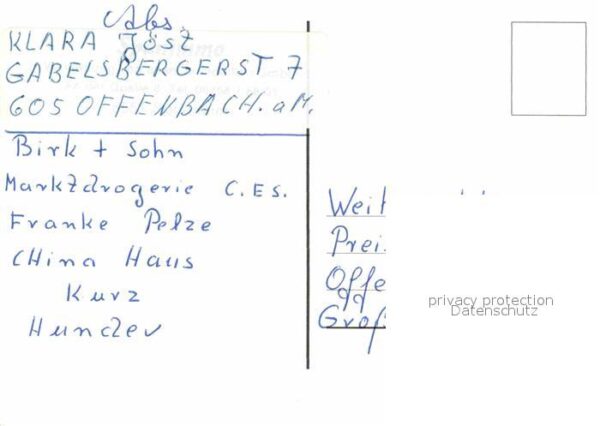 Abs.
KLARA JöSZ
GABELSBERGERST 7
605 OFFENBACH. a M.
Birk + Sohn
Marktdrogerie C. Es.
Franke Pelze
CHina Haus
Kurz
Weit
Prei.
Offe
Groß
privacy protection
Datenschutz